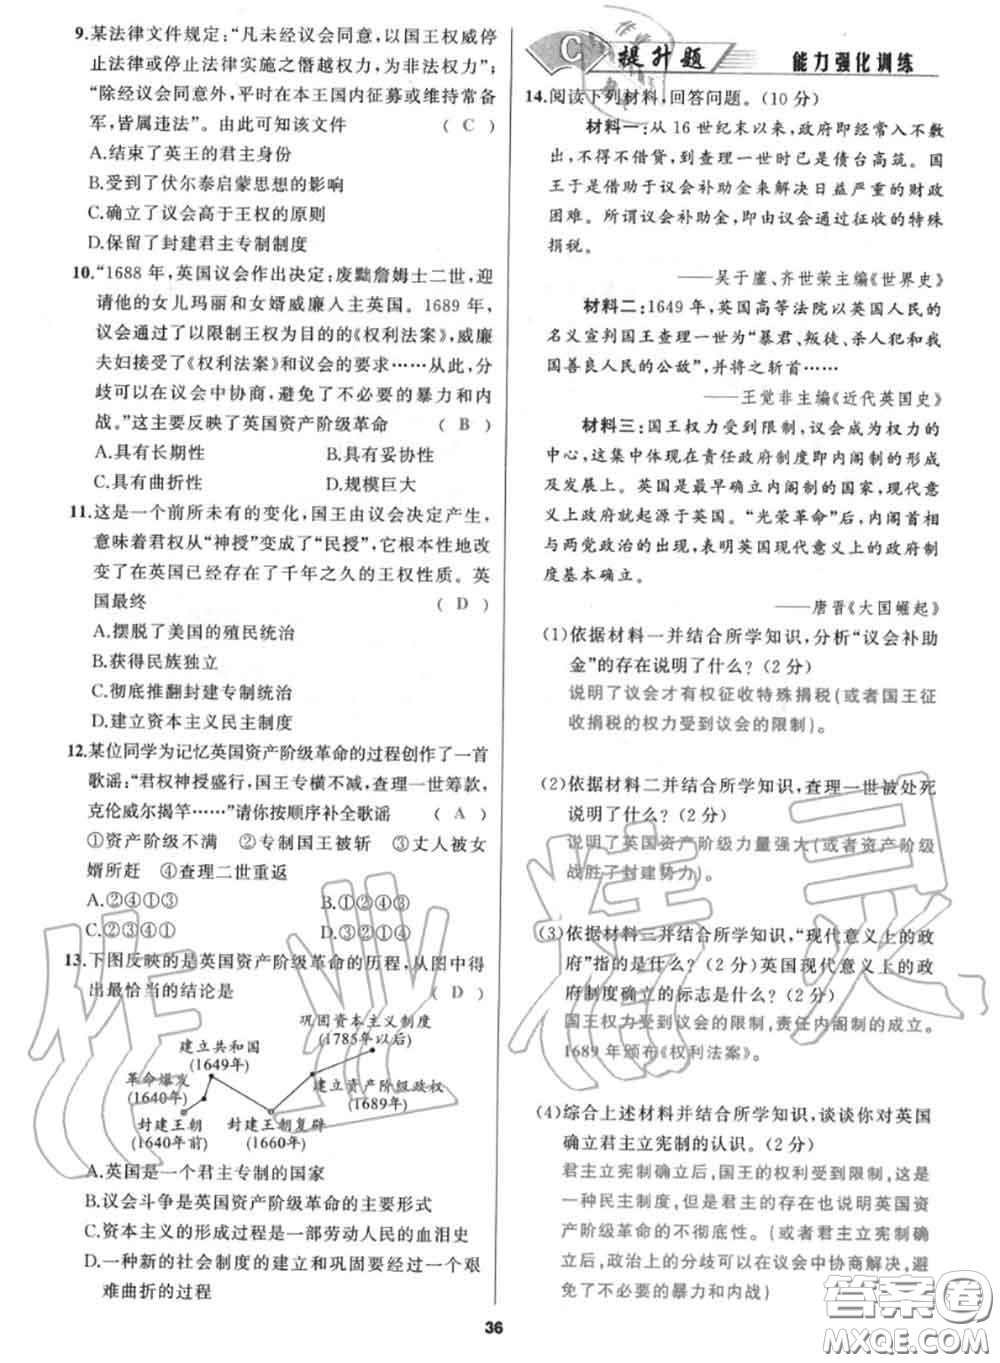 9.某法律文件规定：“凡未经议会同意，以国王权威停
止法律或停止法律实施之僭越权力，为非法权力”；
“除经议会同意外，平时在本王国内征募或维持常备
军，皆属违法”。由此可知该文件 （ C ）
A.结束了英王的君主身份
B.受到了伏尔泰启蒙思想的影响
C.确立了议会高于王权的原则
D.保留了封建君主专制制度
10.“1688年，英国议会作出决定：废黜詹姆士二世，迎
请他的女儿玛丽和女婿威廉入主英国。1689年，
议会通过了以限制王权为目的的《权利法案》，威廉
夫妇接受了《权利法案》和议会的要求……从此，分
歧可以在议会中协商，避免了不必要的暴力和内
战。”这主要反映了英国资产阶级革命 （ B ）
A.具有长期性 B.具有妥协性
C.具有曲折性 D.规模巨大
11.这是一个前所未有的变化，国王由议会决定产生，
意味着君权从“神授”变成了“民授”，它根本性地改
变了在英国已经存在了千年之久的王权性质。英
国最终 （ D ）
A.摆脱了美国的殖民统治
B.获得民族独立
C.彻底推翻封建专制统治
D.建立资本主义民主制度
12.某位同学为记忆英国资产阶级革命的过程创作了一首
歌谣：“君权神授盛行，国王专横不减，查理一世筹款，
克伦威尔揭竿……”请你按顺序补全歌谣 （ A ）
①资产阶级不满 ②专制国王被斩 ③丈人被女
婿所赶 ④查理二世重返
A.②④①③ B.①②④③
C.②③④① D.③②①④
13.下图反映的是英国资产阶级革命的历程，从图中得
出最恰当的结论是 （ D ）
巩固资本主义制度
(1785年以后)
建立共和国
(1649年)
革命爆发
(1640年)
建立资产阶级政权
(1689年)
封建王朝
(1640年前)
封建王朝复辟
(1660年)
A.英国是一个君主专制的国家
B.议会斗争是英国资产阶级革命的主要形式
C.资本主义的形成过程是一部劳动人民的血泪史
D.一种新的社会制度的建立和巩固要经过一个艰
难曲折的过程
C 提升题 能力强化训练
14.阅读下列材料，回答问题。（10分）
材料一：从16世纪末以来，政府即经常入不敷
出，不得不借贷，到查理一世时已是债台高筑。国
王于是借助于议会补助金来解决日益严重的财政
困难。所谓议会补助金，即由议会通过征收的特殊
捐税。
——吴于廑、齐世荣主编《世界史》
材料二：1649年，英国高等法院以英国人民的
名义宣判国王查理一世为“暴君、叛徒、杀人犯和我
国善良人民的公敌”，并将之斩首……
——王觉非主编《近代英国史》
材料三：国王权力受到限制，议会成为权力的
中心，这集中体现在责任政府制度即内阁制的形成
及发展上。英国是最早确立内阁制的国家，现代意
义上政府就起源于英国。“光荣革命”后，内阁首相
与两党政治的出现，表明英国现代意义上的政府制
度基本确立。
——唐晋《大国崛起》
(1)依据材料一并结合所学知识，分析“议会补助
金”的存在说明了什么？（2分）
说明了议会才有权征收特殊捐税(或者国王征
收捐税的权力受到议会的限制)。
(2)依据材料二并结合所学知识，查理一世被处死
说明了什么？（2分）
说明了英国资产阶级力量强大(或者资产阶级
战胜了封建势力)。
(3)依据材料三并结合所学知识，“现代意义上的政
府”指的是什么？（2分）英国现代意义上的政
府制度确立的标志是什么？（2分）
国王权力受到议会的限制，责任内阁制的成立。
1689年颁布《权利法案》。
(4)综合上述材料并结合所学知识，谈谈你对英国
确立君主立宪制的认识。（2分）
君主立宪制确立后，国王的权利受到限制，这是
一种民主制度，但是君主的存在也说明英国资
产阶级革命的不彻底性。(或者君主立宪制确
立后，政治上的分歧可以在议会中协商解决，避
免了不必要的暴力和内战)
36
作业精灵
答案圈
MXQE.COM